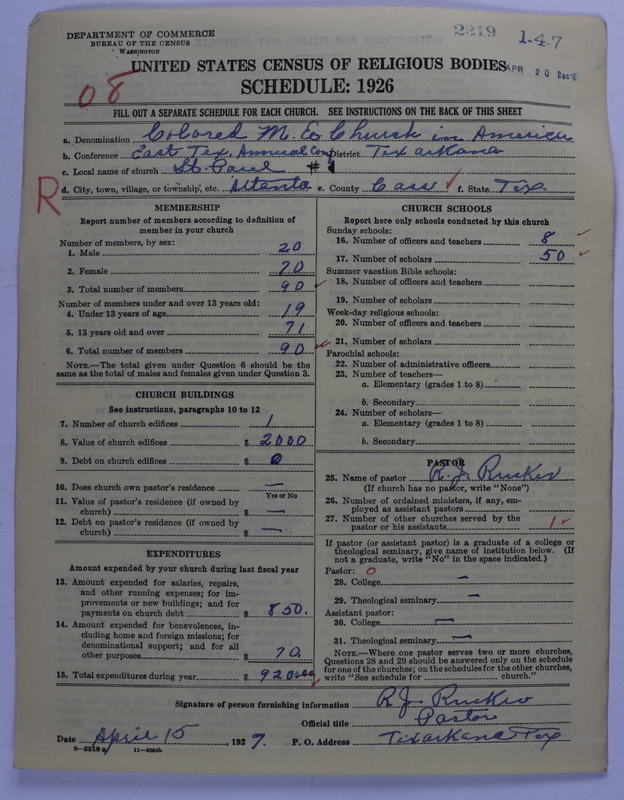 DEPARTMENT OF COMMERCE
BUREAU OF THE CENSUS
WASHINGTON
2219
1-47
APR 20
UNITED STATES CENSUS OF RELIGIOUS BODIES
SCHEDULE: 1926
08
FILL OUT A SEPARATE SCHEDULE FOR EACH CHURCH. SEE INSTRUCTIONS ON THE BACK OF THIS SHEET
a. Denomination Colored M. E. Church in America
b. Conference East Tex. Annual Con District Texarkana
c. Local name of church St. Paul #1
R
d. City, town, village, or township, etc. Atlanta e. County Cass f. State Tex.
MEMBERSHIP
Report number of members according to definition of member in your church
Number of members, by sex:
1. Male 20
2. Female 70
3. Total number of members 90
Number of members under and over 13 years old:
4. Under 13 years of age 19
5. 13 years old and over 71
6. Total number of members 90
NOTE.—The total given under Question 6 should be the
same as the total of males and females given under Question 3.
CHURCH BUILDINGS
See instructions, paragraphs 10 to 12
7. Number of church edifices 1
8. Value of church edifices $ 2000
9. Debt on church edifices $ 0
10. Does church own pastor's residence —
Yes or No
11. Value of pastor's residence (if owned by
church) $ —
12. Debt on pastor's residence (if owned by
church) $ —
EXPENDITURES
Amount expended by your church during last fiscal year
13. Amount expended for salaries, repairs,
and other running expenses; for im-
provements or new buildings; and for
payments on church debt $ 850.
14. Amount expended for benevolences, in-
cluding home and foreign missions; for
denominational support; and for all
other purposes $ 70.
15. Total expenditures during year $ 920
CHURCH SCHOOLS
Report here only schools conducted by this church
Sunday schools:
16. Number of officers and teachers 8
17. Number of scholars 50
Summer vacation Bible schools:
18. Number of officers and teachers
19. Number of scholars
Week-day religious schools:
20. Number of officers and teachers
21. Number of scholars
Parochial schools:
22. Number of administrative officers
23. Number of teachers—
a. Elementary (grades 1 to 8)
b. Secondary
24. Number of scholars—
a. Elementary (grades 1 to 8)
b. Secondary
PASTOR
25. Name of pastor R. J. Rucker
(If church has no pastor, write "None")
26. Number of ordained ministers, if any, em-
ployed as assistant pastors
27. Number of other churches served by the
pastor or his assistants 1
If pastor (or assistant pastor) is a graduate of a college or
theological seminary, give name of institution below. (If
not a graduate, write "No" in the space indicated.)
Pastor: 0
28. College —
29. Theological seminary —
Assistant pastor:
30. College —
31. Theological seminary —
NOTE.—Where one pastor serves two or more churches,
Questions 28 and 29 should be answered only on the schedule
for one of the churches; on the schedules for the other churches,
write "See schedule for church."
Signature of person furnishing information R. J. Rucker
Official title Pastor
Date April 15, 1927. P. O. Address Texarkana Tex
8-5318a 11-9864b